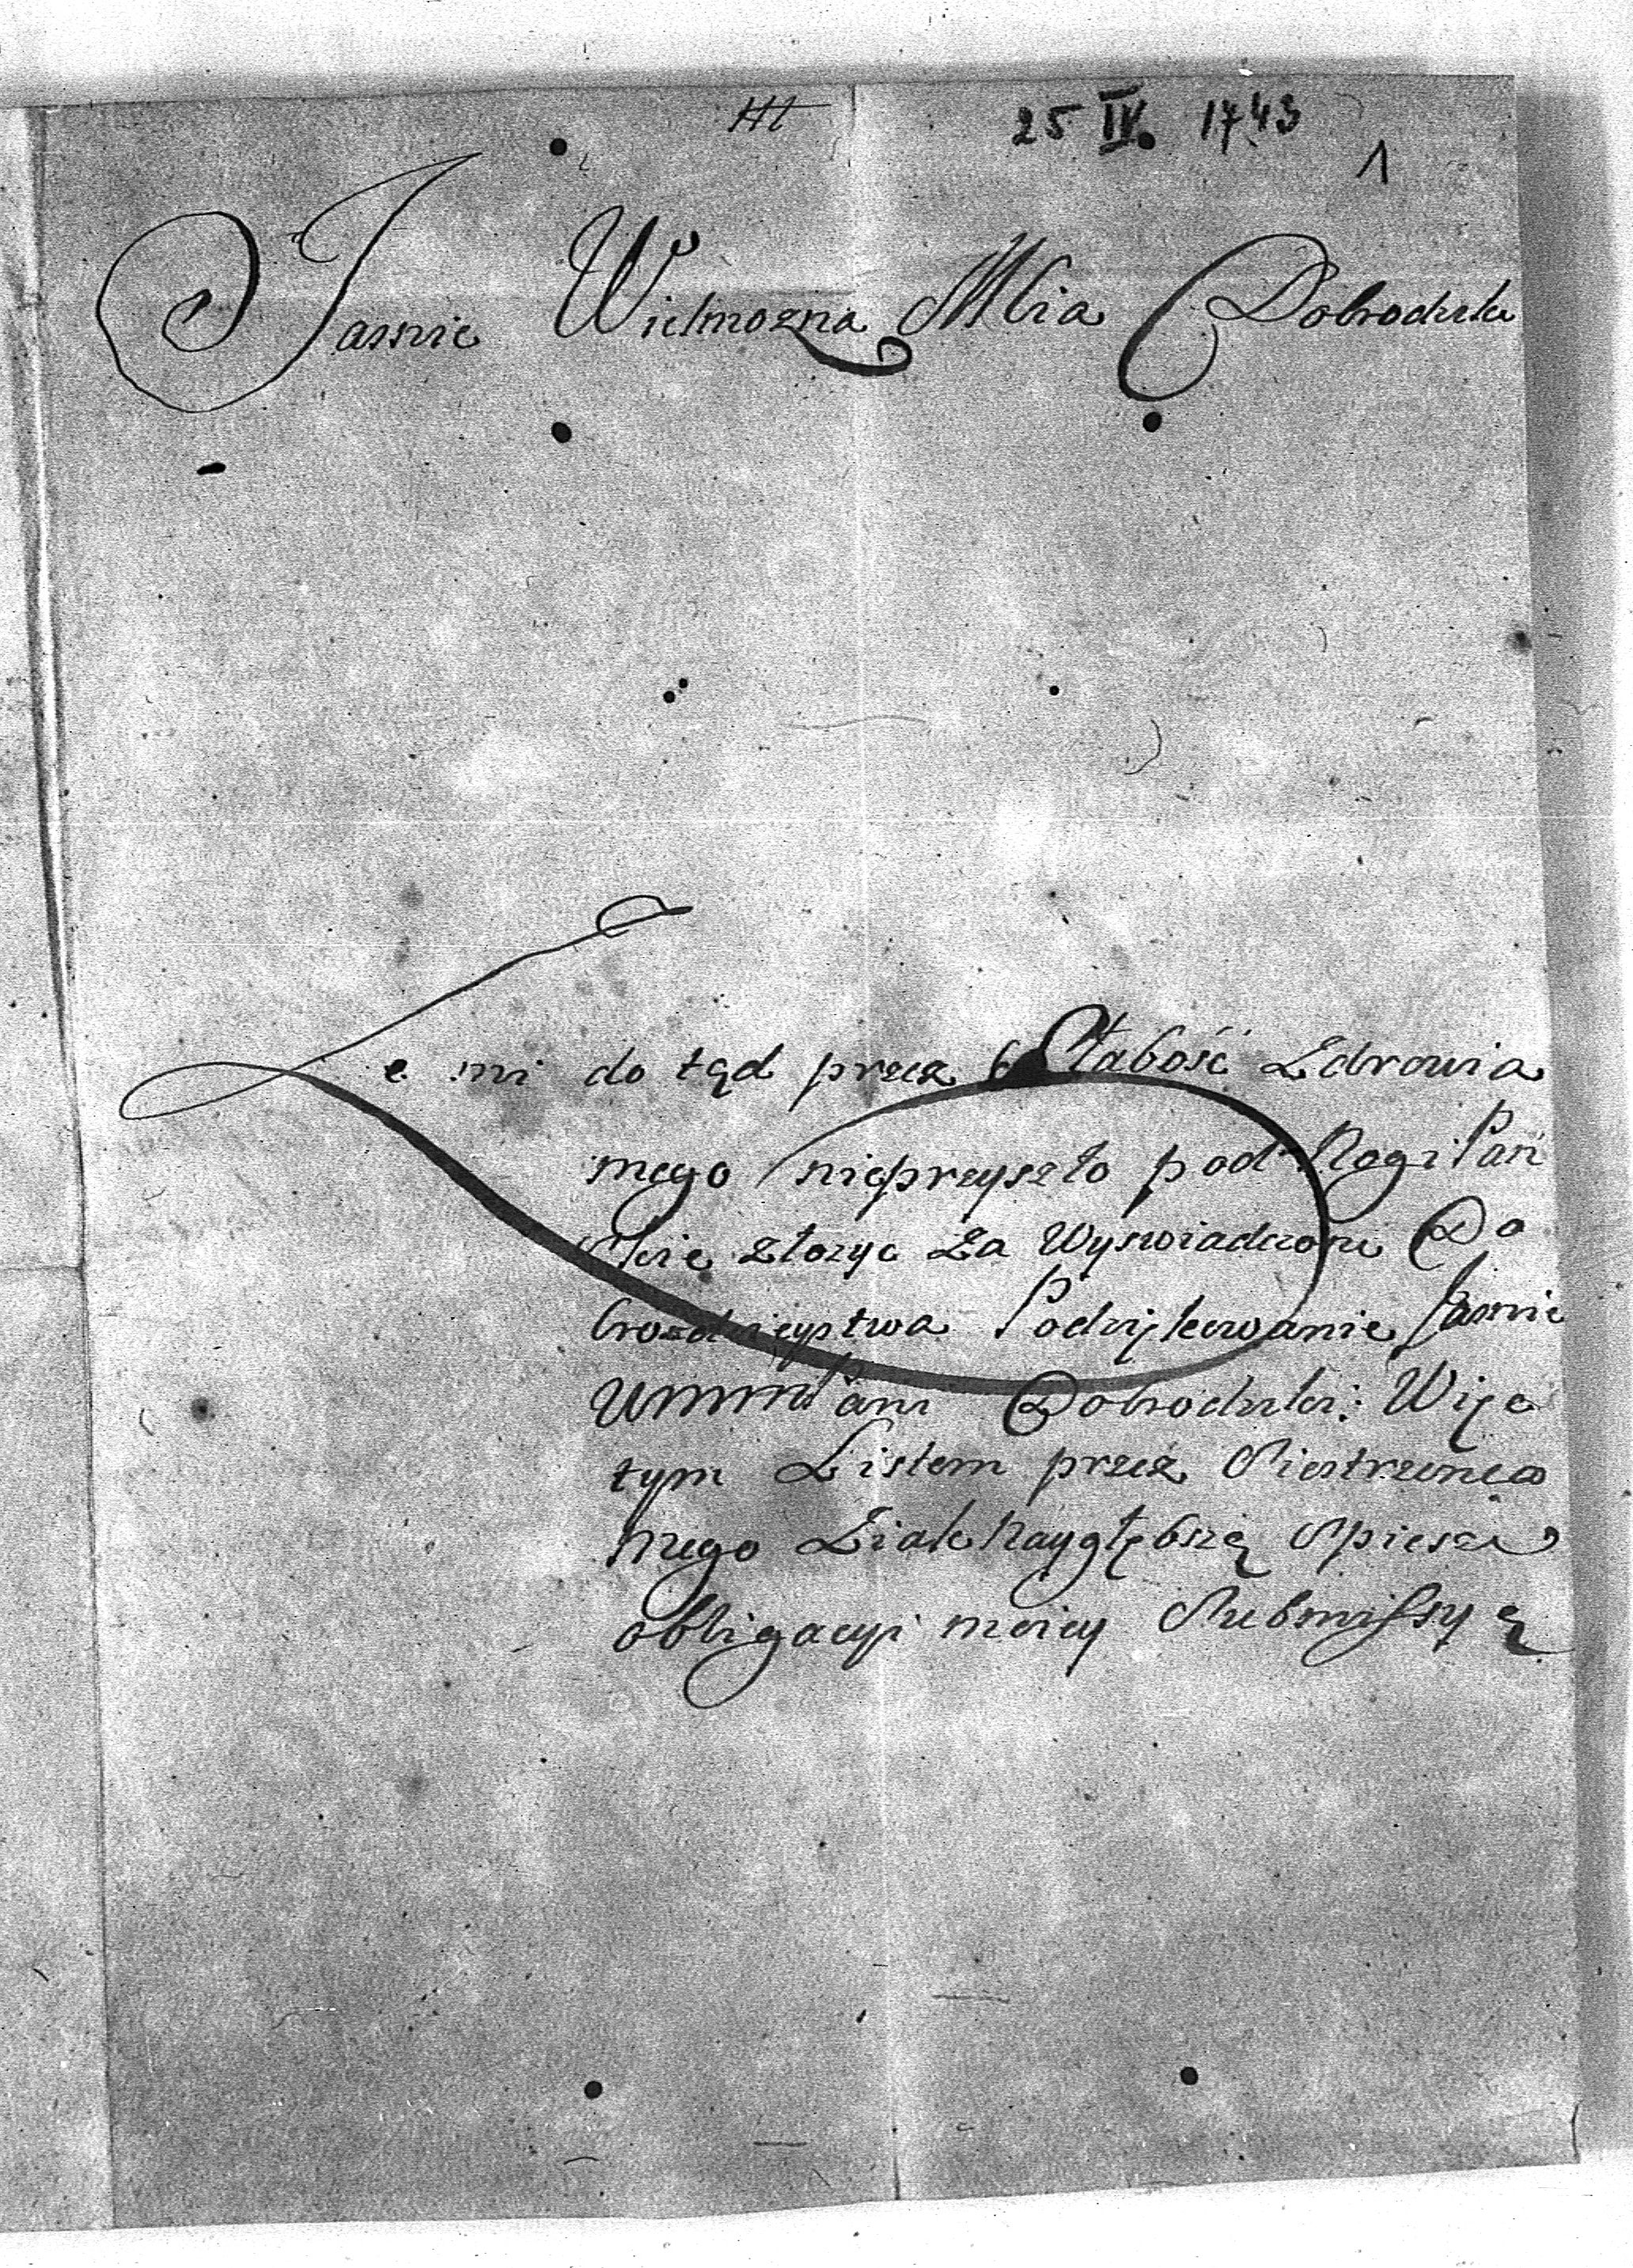 25 IV. 1743
1
Jasnie Wielmozna Mcia Dobrodzika
Ze mi do tąd przez Słabość Zdrowia
mego nieprzyszło pod Nogi Pań
skie złozyc Za Wyswiadczone Do
brodzieystwa Podziękowanie Jasnie
WMMPani Dobrodziki: Więc
tym Listem przez Siestrzenca
mego Ziak Naygłębszą Spiesze
obligacyi moiey Submissyą